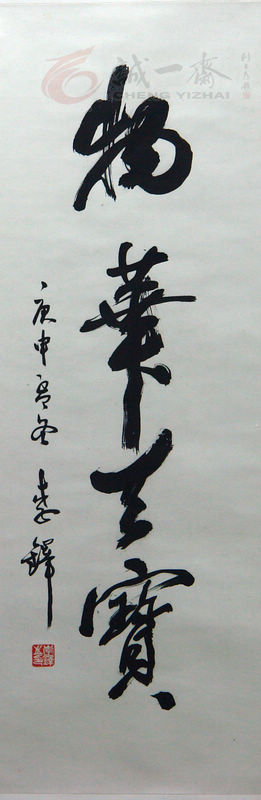 诚一斋
CHENG YIZHAI
物華天寶
庚申孟冬